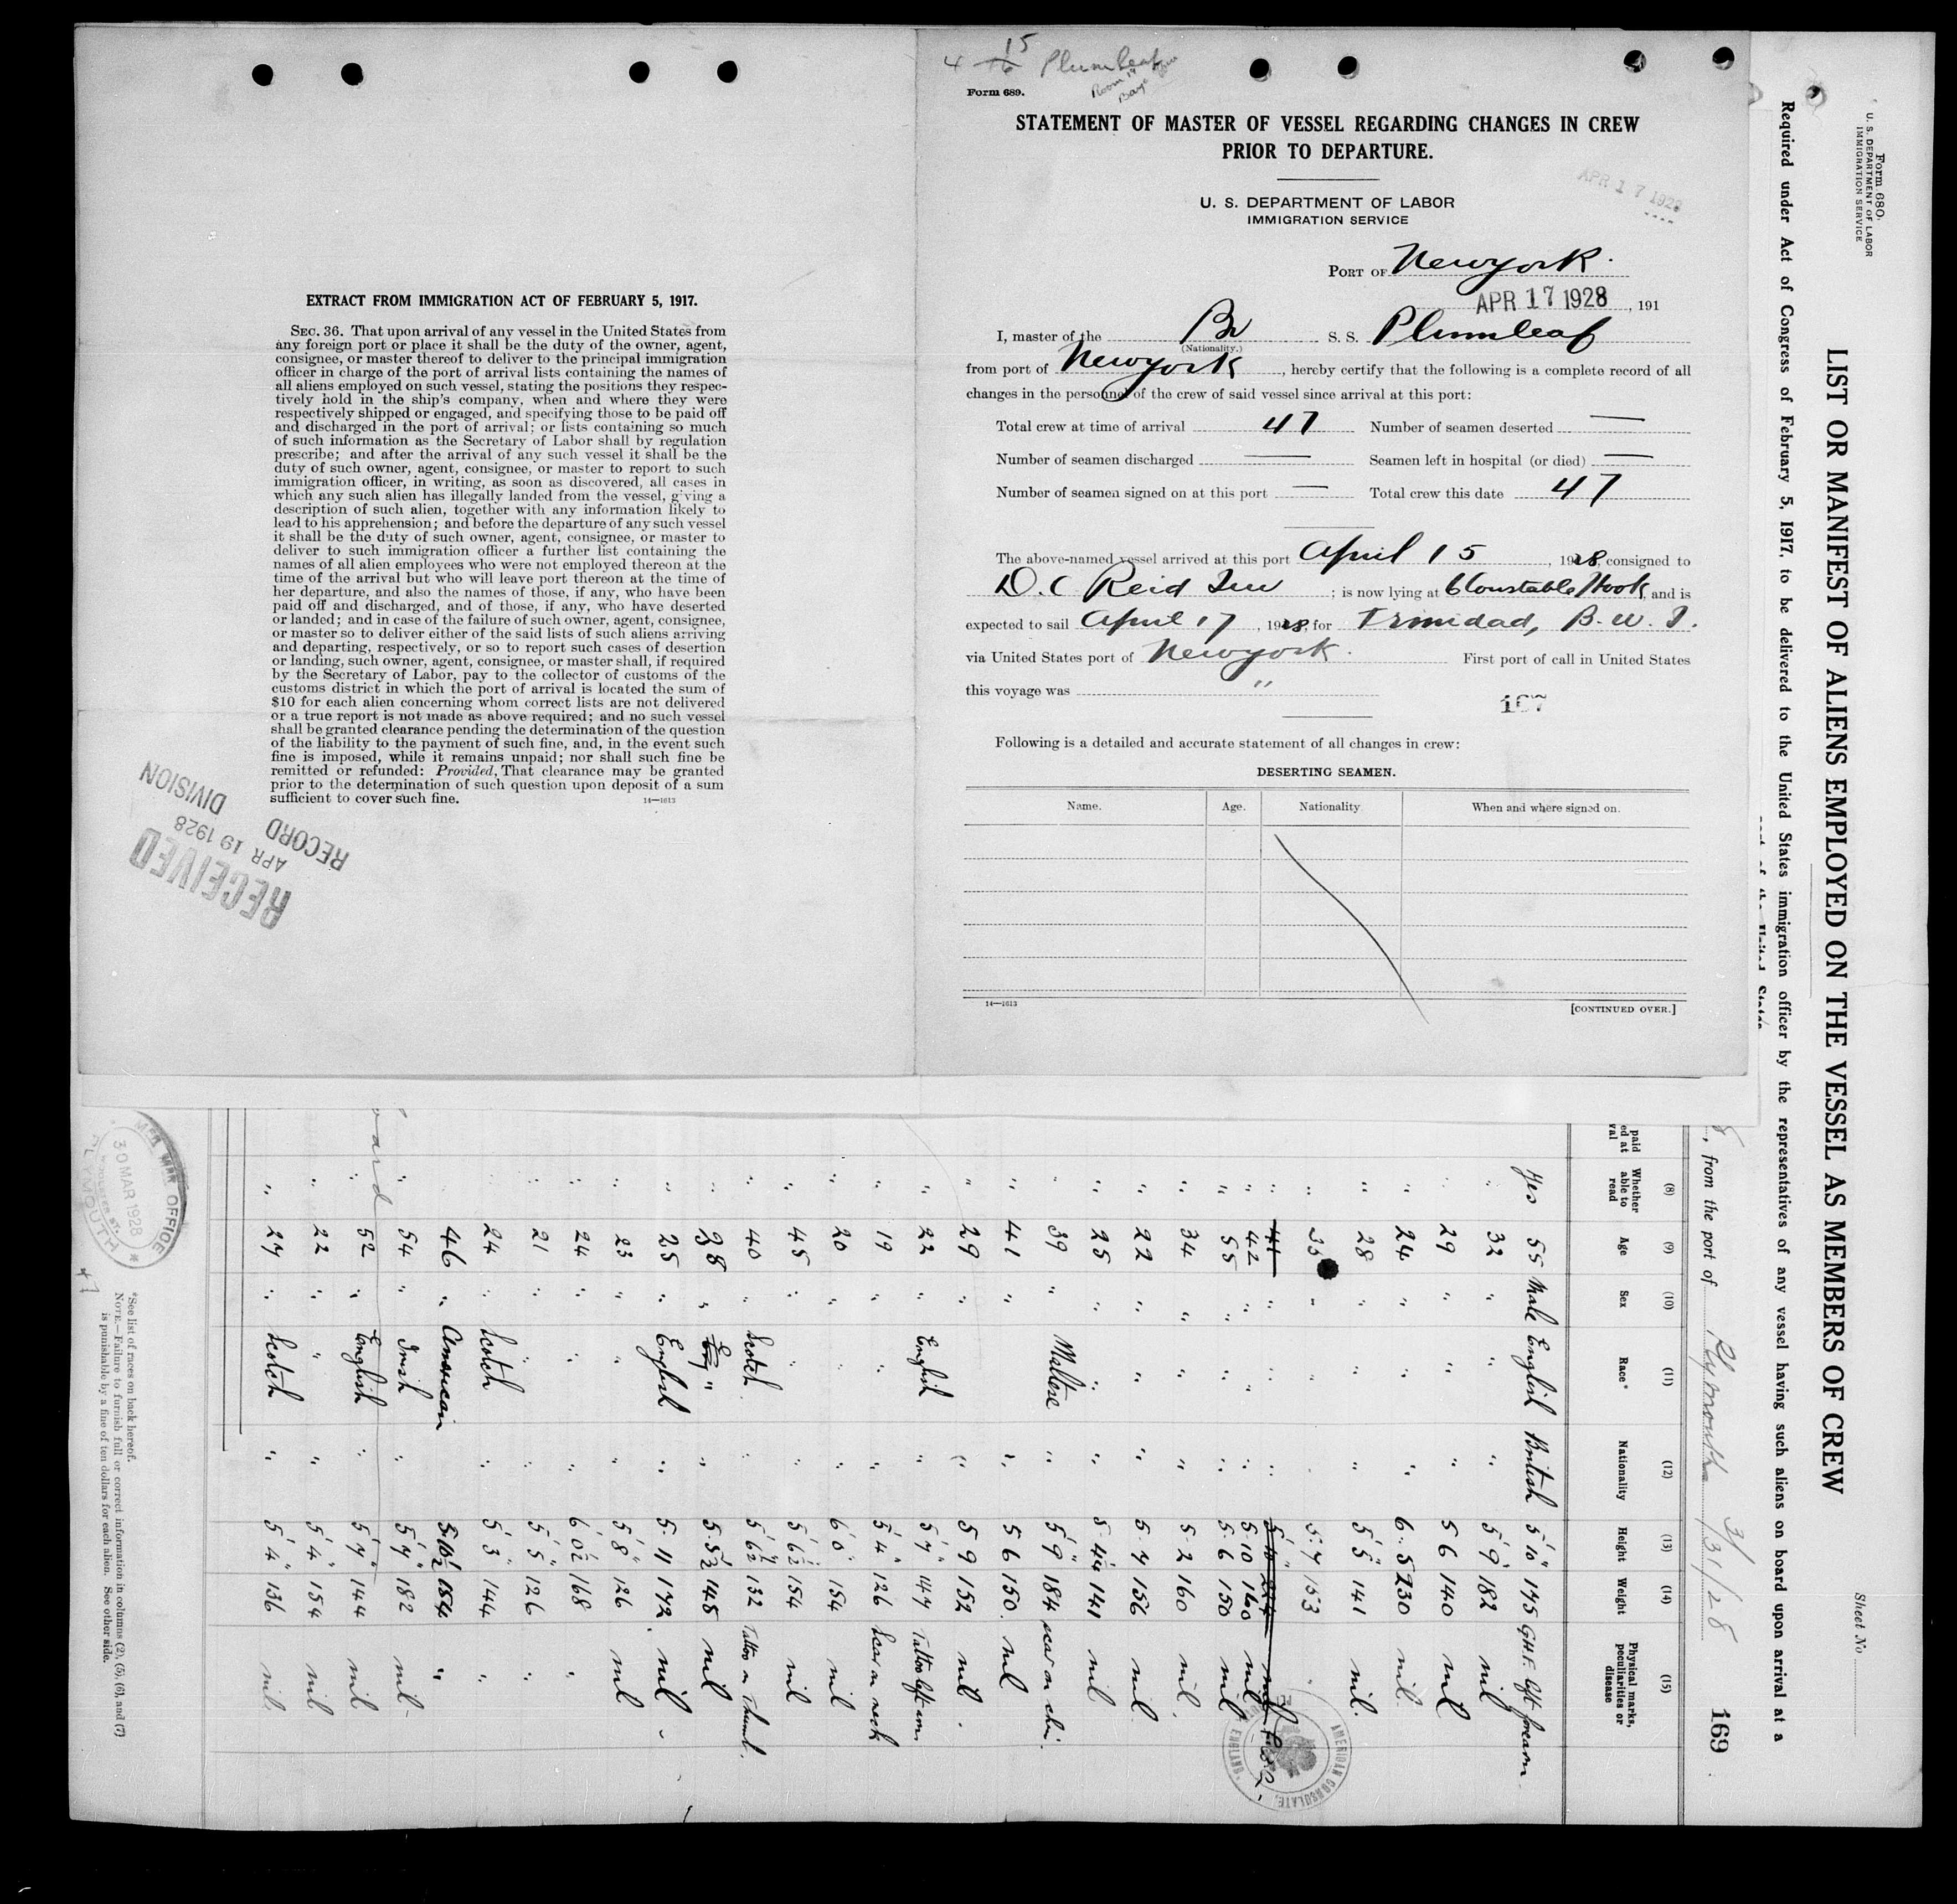 EXTRACT FROM IMMIGRATION ACT OF FEBRUARY 5, 1917.
SEC. 36. That upon arrival of any vessel in the United States from
any foreign port or place it shall be the duty of the owner, agent,
consignee, or master thereof to deliver to the principal immigration
officer in charge of the port of arrival lists containing the names of
all aliens employed on such vessel, stating the positions they respec-
tively hold in the ship's company, when and where they were
respectively shipped or engaged, and specifying those to be paid off
and discharged in the port of arrival; or lists containing so much
of such information as the Secretary of Labor shall by regulation
prescribe; and after the arrival of any such vessel it shall be the
duty of such owner, agent, consignee, or master to report to such
immigration officer, in writing, as soon as discovered, all cases in
which any such alien has illegally landed from the vessel, giving a
description of such alien, together with any information likely to
lead to his apprehension; and before the departure of any such vessel
it shall be the duty of such owner, agent, consignee, or master to
deliver to such immigration officer a further list containing the
names of all alien employees who were not employed thereon at the
time of the arrival but who will leave port thereon at the time of
her departure, and also the names of those, if any, who have been
paid off and discharged, and of those, if any, who have deserted
or landed; and in case of the failure of such owner, agent, consignee,
or master so to deliver either of the said lists of such aliens arriving
and departing, respectively, or so to report such cases of desertion
or landing, such owner, agent, consignee, or master shall, if required
by the Secretary of Labor, pay to the collector of customs of the
customs district in which the port of arrival is located the sum of
$10 for each alien concerning whom correct lists are not delivered
or a true report is not made as above required; and no such vessel
shall be granted clearance pending the determination of the question
of the liability to the payment of such fine, and, in the event such
fine is imposed, while it remains unpaid; nor shall such fine be
remitted or refunded: Provided, That clearance may be granted
prior to the determination of such question upon deposit of a sum
sufficient to cover such fine.
14—1613
RECEIVED
APR 19 1928
RECORD
DIVISION
4 15 16 Plumleaf
Form 689.
STATEMENT OF MASTER OF VESSEL REGARDING CHANGES IN CREW
PRIOR TO DEPARTURE.
APR 17 1928
U. S. DEPARTMENT OF LABOR
IMMIGRATION SERVICE
PORT OF New york.
APR 17 1928, 191
I, master of the Br S. S. Plumleaf
(Nationality.)
from port of New york, hereby certify that the following is a complete record of all
changes in the personnel of the crew of said vessel since arrival at this port:
Total crew at time of arrival 47 Number of seamen deserted —
Number of seamen discharged — Seamen left in hospital (or died) —
Number of seamen signed on at this port — Total crew this date 47
The above-named vessel arrived at this port April 15, 1928, consigned to
D. C Reid ; is now lying at Constable Hook, and is
expected to sail April 17, 1928, for Trinidad, B. W. I.
via United States port of New york. First port of call in United States
this voyage was "
167
Following is a detailed and accurate statement of all changes in crew:
DESERTING SEAMEN.
Name. Age. Nationality. When and where signed on.
14—1613
[CONTINUED OVER.]
Form 680.
U. S. DEPARTMENT OF LABOR
IMMIGRATION SERVICE
Sheet No
LIST OR MANIFEST OF ALIENS EMPLOYED ON THE VESSEL AS MEMBERS OF CREW
Required under Act of Congress of February 5, 1917, to be delivered to the United States immigration officer by the representatives of any vessel having such aliens on board upon arrival at a
8, from the port of Plymouth 3/31/28
169
(8) (9) (10) (11) (12) (13) (14) (15)
Whether able to read Age Sex Race* Nationality Height Weight Physical marks, peculiarities or disease
Yes 55 Male English British 5' 10" 175 GHF left forearm
" 32 " " " 5' 9" 182 nil
" 29 " " " 5 6 140 nil
" 24 " " " 6. 5 230 nil.
" 28 " " " 5' 5" 141 nil.
" 35 " " " 5. 7 153 "
" 41 " " " 5' 10" 224 nil
" 42 " " " 5. 10 160 nil
" 55 " " " 5. 6 150 nil
" 34 " " " 5. 2 160 nil.
" 22 " " " 5. 7 156 nil.
" 25 " " " 5. 4½ 141 nil
" 39 " Maltese " 5' 9" 184 scar on chin.
" 41 " " 5 6 150. nil
" 29 " " 5 9 152 nil.
" 22 " English " 5' 7" 147 Tattoo left arm
" 19 " " " 5' 4" 126 Scar on neck
" 20 " " " 6' 0" 154 nil
" 45 " " " 5' 6½" 154 nil
" 40 " Scotch " 5' 6½" 132 Tattoo on thumb.
" 38 " " " 5. 5½ 148 nil
" 25 " English " 5. 11 172 nil
" 23 " " " 5' 8" 126 nil
" 24 " " " 6' 0½" 168 "
" 21 " " " 5' 5" 126 "
" 24 " Scotch " 5' 3" 144 "
46 " American 5' 10½" 154 "
" 54 " Irish " 5' 7" 182 nil
" 52 " English " 5' 7" 144 nil
" 22 " " " 5' 4" 154 nil
" 27 " Scotch " 5' 4" 136 nil
AMERICAN CONSULATE,
ENGLAND
MAR OFFICE
30 MAR 1928
PLYMOUTH
47
*See list of races on back hereof.
NOTE.—Failure to furnish full or correct information in columns (2), (5), (6), and (7)
is punishable by a fine of ten dollars for each alien. See other side.